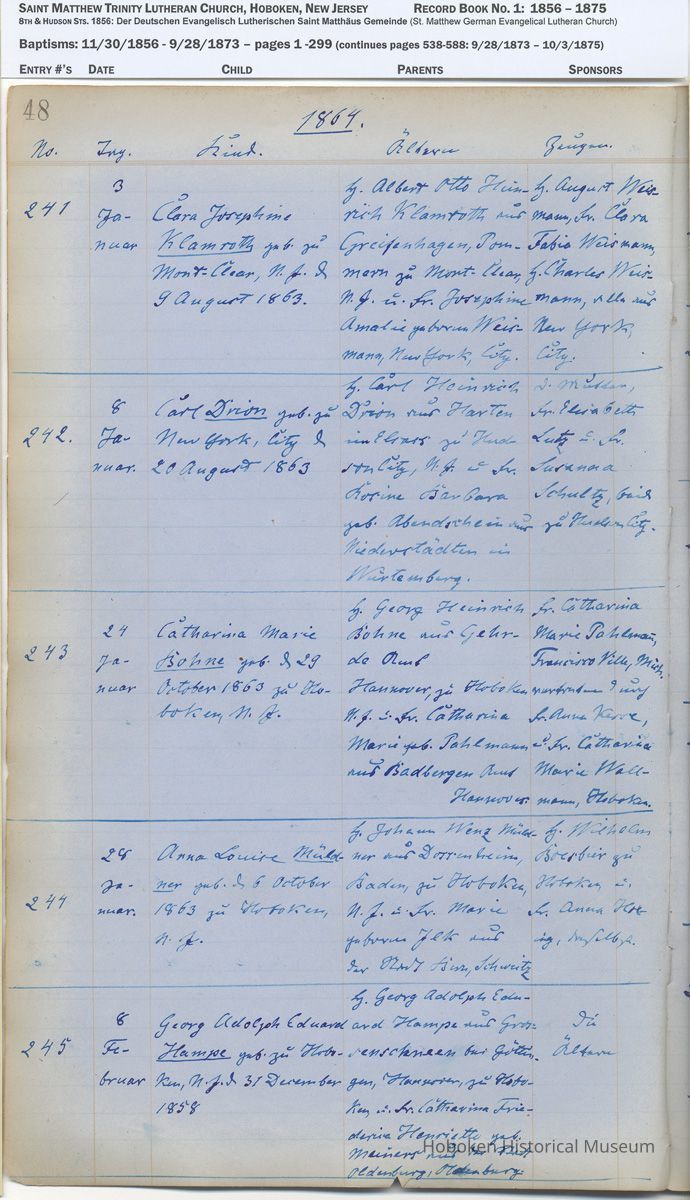 SAINT MATTHEW TRINITY LUTHERAN CHURCH, HOBOKEN, NEW JERSEY RECORD BOOK NO. 1: 1856 – 1875
8TH & HUDSON STS. 1856: Der Deutschen Evangelisch Lutherischen Saint Matthäus Gemeinde (St. Matthew German Evangelical Lutheran Church)
Baptisms: 11/30/1856 - 9/28/1873 – pages 1 -299 (continues pages 538-588: 9/28/1873 – 10/3/1875)
ENTRY #'S DATE CHILD PARENTS SPONSORS
48
1864.
No. Tag. Kind. Ältern Zeugen.
241
3
Ja-
nuar
Clara Josephine
Klamroth geb. zu
Mont-Clear, N. J. d
9 August 1863.
H. Albert Otto Hein-
rich Klamroth aus
Greifenhagen, Pom-
mern zu Mont-Clear,
N. J. u. Fr. Josephine
Amalie geboren Weis-
mann, New York, City.
H. August Weis-
mann, Fr. Clara
Fabia Weismann,
H. Charles Weis-
mann, alle aus
New York,
City.
242.
8
Ja-
nuar.
Carl Drion geb. zu
New York, City d
20 August 1863
H. Carl Heinrich
Drion aus Harten
im Elsass zu Hud
son City, N. J. u Fr.
Rosine Barbara
geb. Abendschein aus
Niederstädten in
Würtemberg.
D. Mutter,
Fr. Elisabeth
Lutz u. Fr.
Susanna
Schultz, beide
zu Hudson City.
243
24
Ja-
nuar
Catharina Marie
Bohne geb. d 29
October 1863 zu Ho-
boken, N. J.
H. Georg Heinrich
Bohne aus Gehr-
de Amt
Hannover, zu Hoboken
N. J. u. Fr. Catharina
Marie geb. Pahlmann
aus Badbergen Amt
Hannover.
Fr. Catharina
Marie Pahlmann,
Francisco Ville, Mich.
vertreten durch
Fr. Anna
u. Fr. Catharina
Marie Wall-
mann, Hoboken.
244
28
Ja-
nuar.
Anna Louise Müld
ner geb. d 6 October
1863 zu Hoboken,
N. J.
H. Johann Wenz Müld-
ner aus Dossenheim,
Baden, zu Hoboken,
N. J. u. Fr. Marie
geboren Jlk aus
der Stadt Bern, Schweitz
H. Wilhelm
zu
Hoboken u.
Fr. Anna
daselbst.
245
8
Fe-
bruar
Georg Adolph Eduard
Hampe geb. zu Hobo-
ken, N. J. d 31 December
1858
H. Georg Adolph Edu-
ard Hampe aus Gros-
senschneen bei Göttin-
gen, Hannover, zu Hobo-
ken u. Fr. Catharina Frie-
derica Henriette geb.
Meiners aus
Oldenburg, Oldenburg.
Die
Ältern
Hoboken Historical Museum